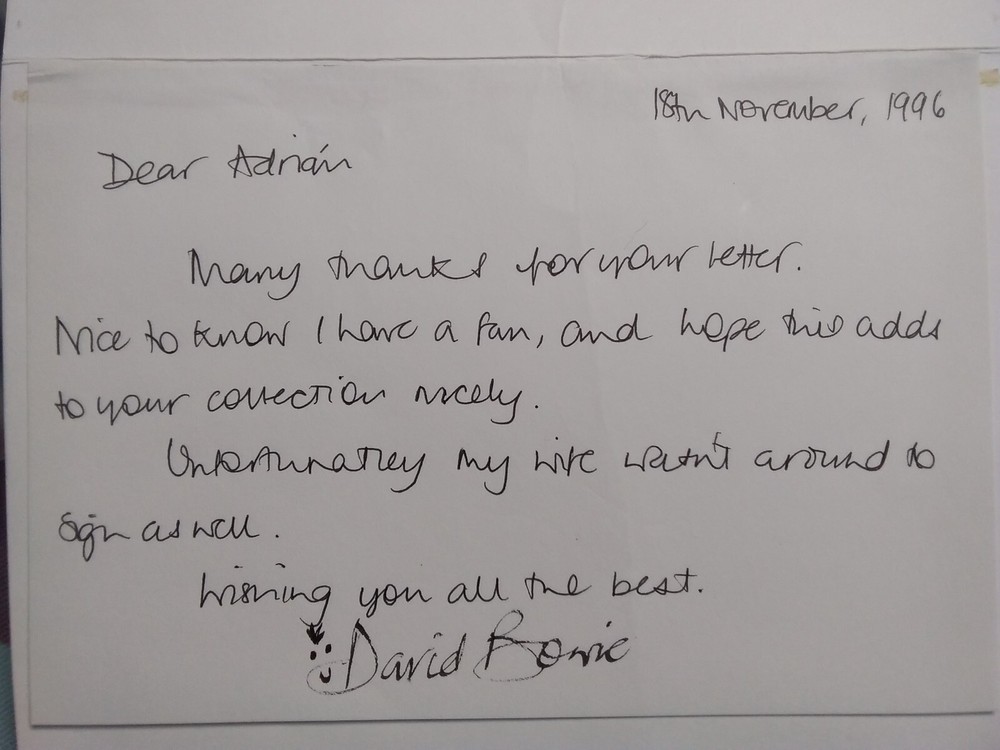 18th November, 1996
Dear Adrian
Many thanks for your letter.
Nice to know I have a fan, and hope this adds
to your collection nicely.
Unfortunatley my wife wasn't around to
sign as well.
Wishing you all the best.
David Bowie